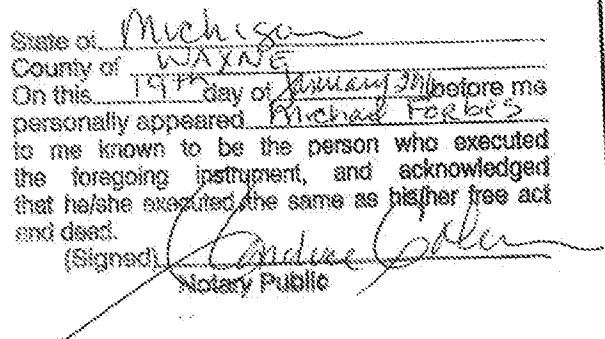 State of Michigan
County of WAYNE
On this 19th day of January before me
personally appeared Michael Forbes
to me known to be the person who executed
the foregoing instrument, and acknowledged
that he/she executed the same as his/her free act
and deed.
(Signed)
Notary Public